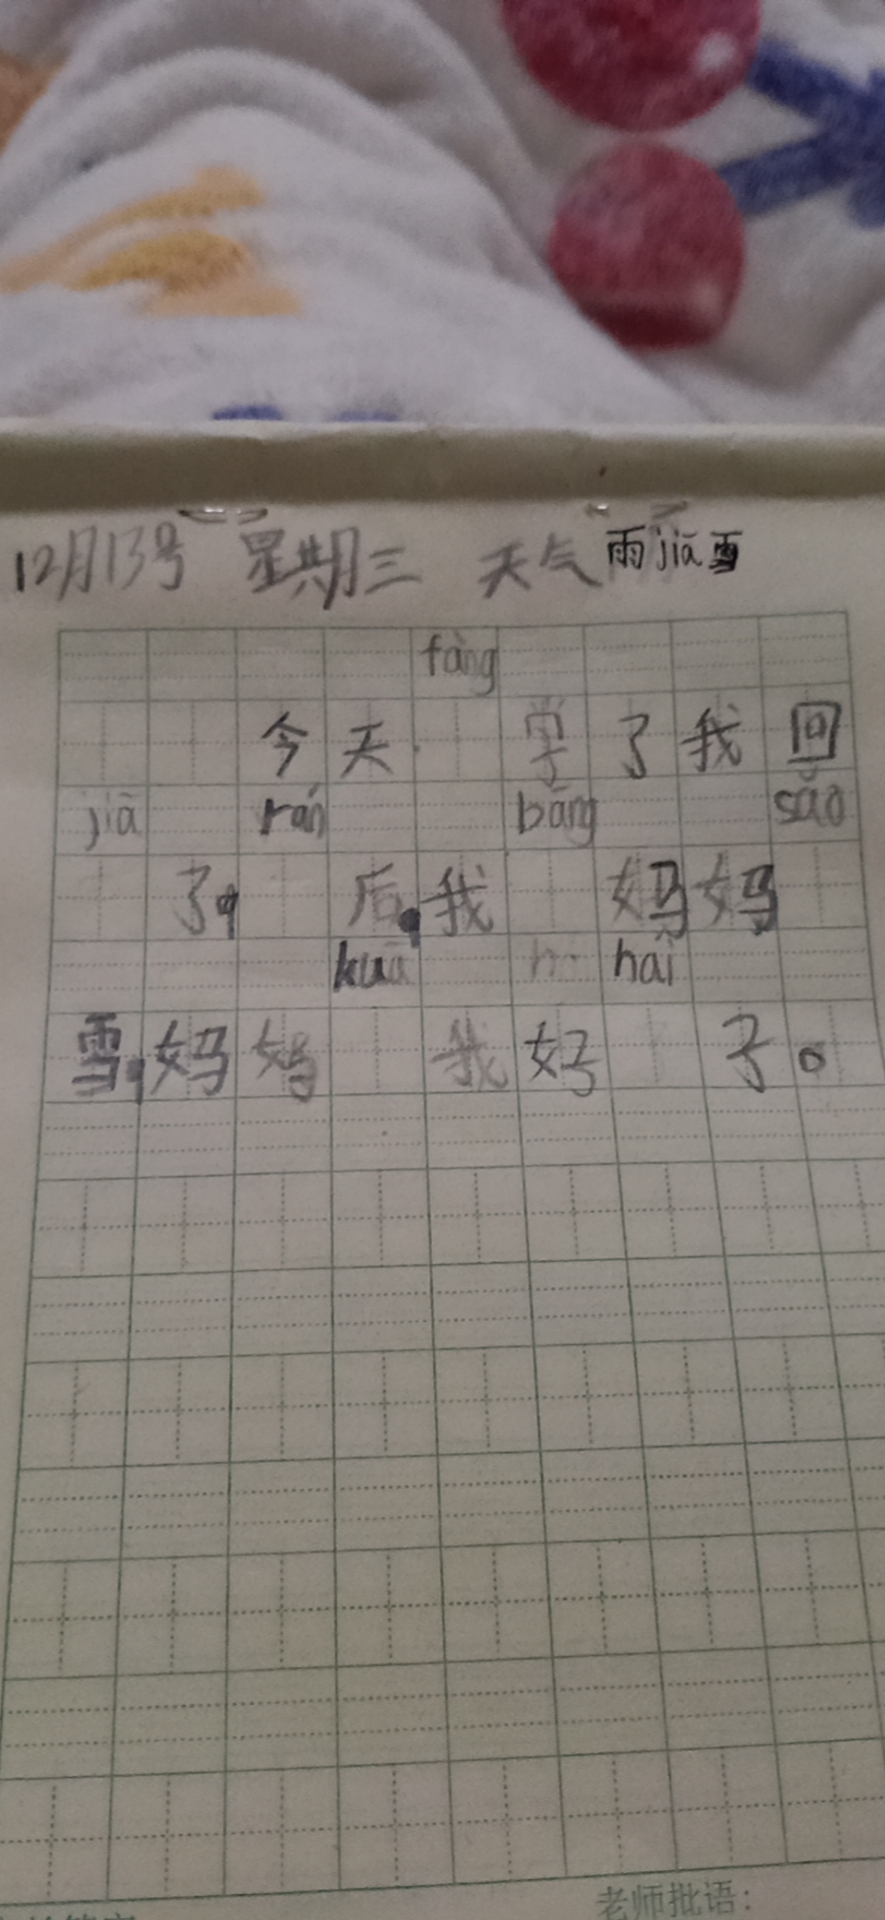 12月13号 星期三 天气 雨jiā雪
fàng
今天 学了我回
jiā rán bāng sǎo
了，后，我 妈妈
kuā hái
雪，妈妈 我好 子。
老师批语：